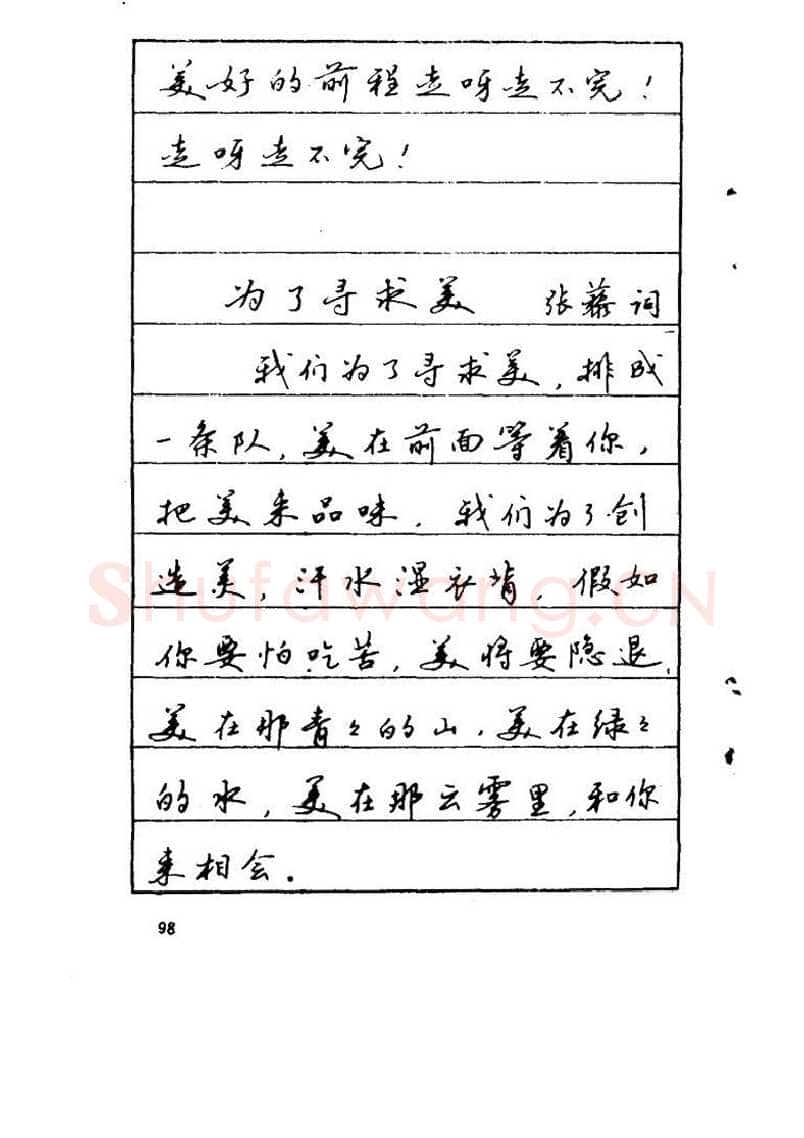 美好的前程走呀走不完！
走呀走不完！
为了寻求美 张藜词
我们为了寻求美，排成
一条队，美在前面等着你，
把美来品味，我们为了创
造美，汗水湿衣背，假如
你要怕吃苦，美将要隐退，
美在那青々的山，美在绿々
的水，美在那云雾里，和你
来相会．
98
Shufawang.CN